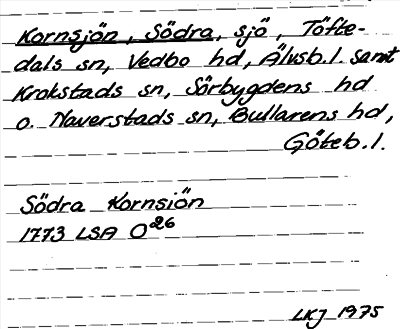 Kornsjön, Södra, sjö, Töfte-
dals sn, Vedbo hd, Älvsb.l. samt
Krokstads sn, Sörbygdens hd
o. Naverstads sn, Bullarens hd,
Göteb.l.
Södra Kornsiön
1773 LSA O26
LKJ 1975